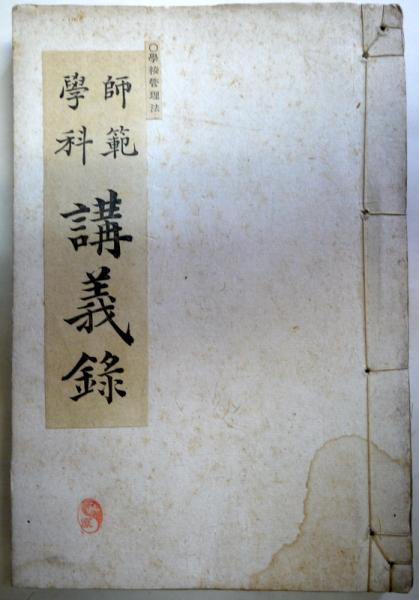 〇學校管理法
師範
學科
講義錄